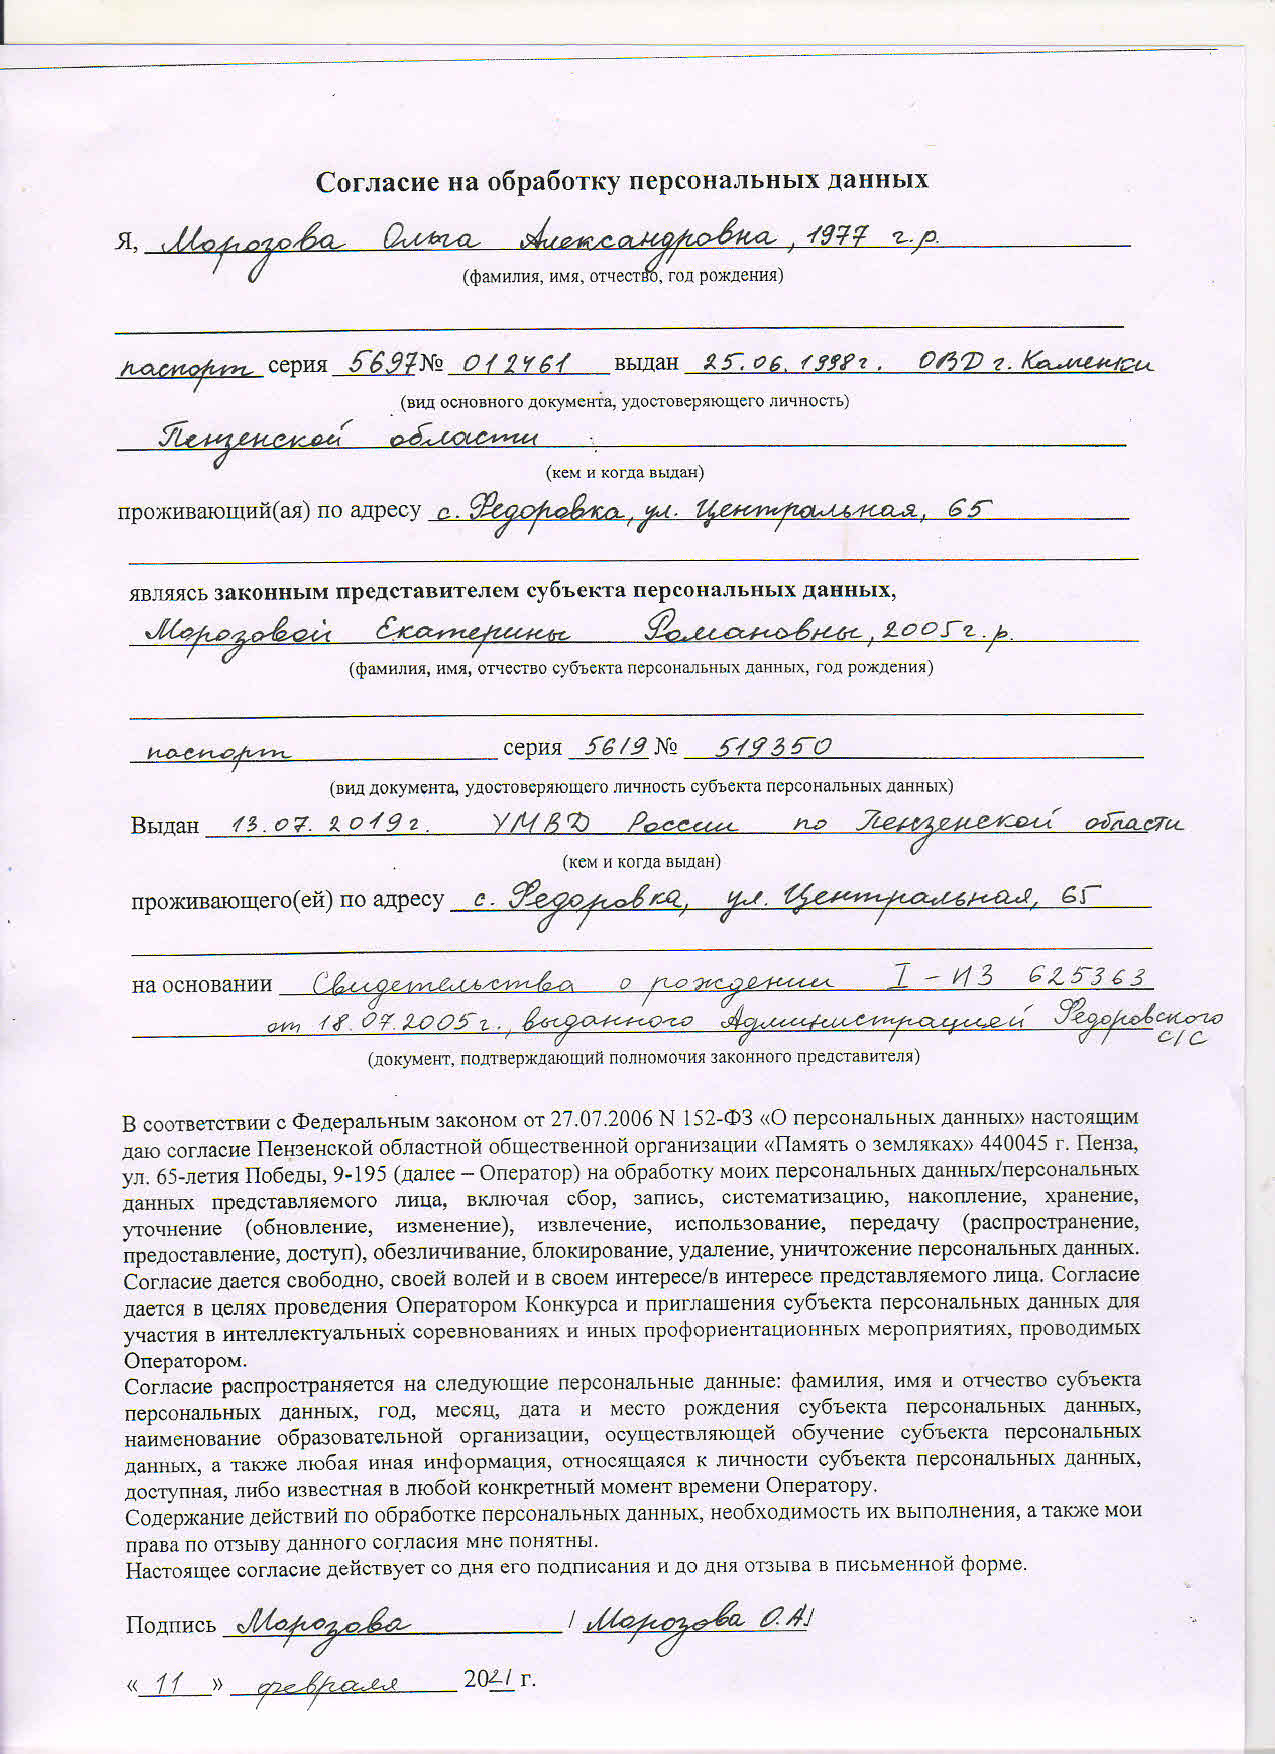 Согласие на обработку персональных данных
Я, Морозова Ольга Александровна, 1977 г.р.
(фамилия, имя, отчество, год рождения)
паспорт серия 5697 № 012461 выдан 25.06.1998г. ОВД г. Каменки
(вид основного документа, удостоверяющего личность)
Пензенской области
(кем и когда выдан)
проживающий(ая) по адресу с. Федоровка, ул. Центральная, 65
являясь законным представителем субъекта персональных данных,
Морозовой Екатерины Романовны, 2005г.р.
(фамилия, имя, отчество субъекта персональных данных, год рождения)
паспорт серия 5619 № 519350
(вид документа, удостоверяющего личность субъекта персональных данных)
Выдан 13.07.2019г. УМВД России по Пензенской области
(кем и когда выдан)
проживающего(ей) по адресу с. Федоровка, ул. Центральная, 65
на основании Свидетельства о рождении I-ИЗ 625363
от 18.07.2005г., выданного Администрацией Федоровского
с/с
(документ, подтверждающий полномочия законного представителя)
В соответствии с Федеральным законом от 27.07.2006 N 152-ФЗ «О персональных данных» настоящим
даю согласие Пензенской областной общественной организации «Память о земляках» 440045 г. Пенза,
ул. 65-летия Победы, 9-195 (далее – Оператор) на обработку моих персональных данных/персональных
данных представляемого лица, включая сбор, запись, систематизацию, накопление, хранение,
уточнение (обновление, изменение), извлечение, использование, передачу (распространение,
предоставление, доступ), обезличивание, блокирование, удаление, уничтожение персональных данных.
Согласие дается свободно, своей волей и в своем интересе/в интересе представляемого лица. Согласие
дается в целях проведения Оператором Конкурса и приглашения субъекта персональных данных для
участия в интеллектуальных соревнованиях и иных профориентационных мероприятиях, проводимых
Оператором.
Согласие распространяется на следующие персональные данные: фамилия, имя и отчество субъекта
персональных данных, год, месяц, дата и место рождения субъекта персональных данных,
наименование образовательной организации, осуществляющей обучение субъекта персональных
данных, а также любая иная информация, относящаяся к личности субъекта персональных данных,
доступная, либо известная в любой конкретный момент времени Оператору.
Содержание действий по обработке персональных данных, необходимость их выполнения, а также мои
права по отзыву данного согласия мне понятны.
Настоящее согласие действует со дня его подписания и до дня отзыва в письменной форме.
Подпись Морозова / Морозова О.А/
«11» февраля 2021 г.